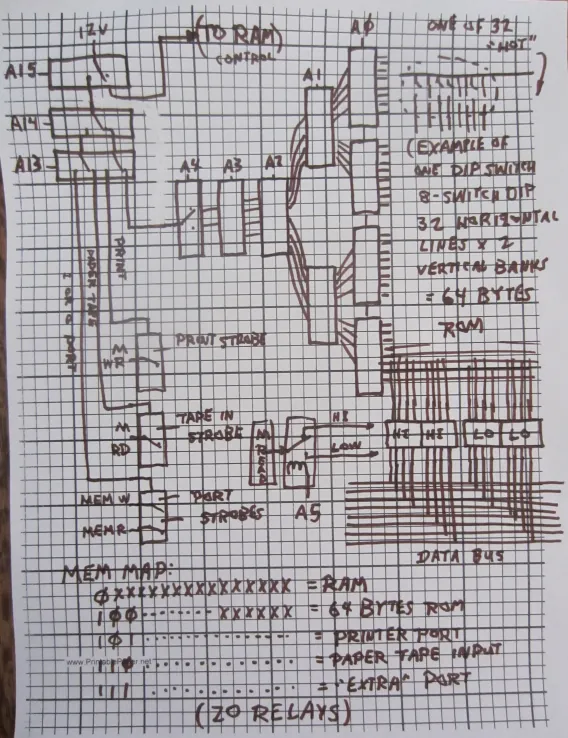 12V
(TO RAM)
CONTROL
A0
ONE OF 32
"HOT"
A15
A1
A14
A13
A4 A3 A2
(EXAMPLE OF
ONE DIP SWITCH
8-SWITCH DIP
32 HORIZONTAL
LINES X 2
VERTICAL BANKS
= 64 BYTES
ROM
PRINT
TAPE
PORT
PRINT STROBE
M
WR
TAPE IN
STROBE
M
RD
MREAD
HI
LOW
A5
HI HI LO LO
MEM W
PORT
STROBES
MEMR
DATA BUS
MEM MAP:
0XXXXXXXXXXXXXXX = RAM
100 ........ XXXXXX = 64 BYTES ROM
101 .............. = PRINTER PORT
110 .............. = PAPER TAPE INPUT
111 .............. = "EXTRA" PORT
(20 RELAYS)